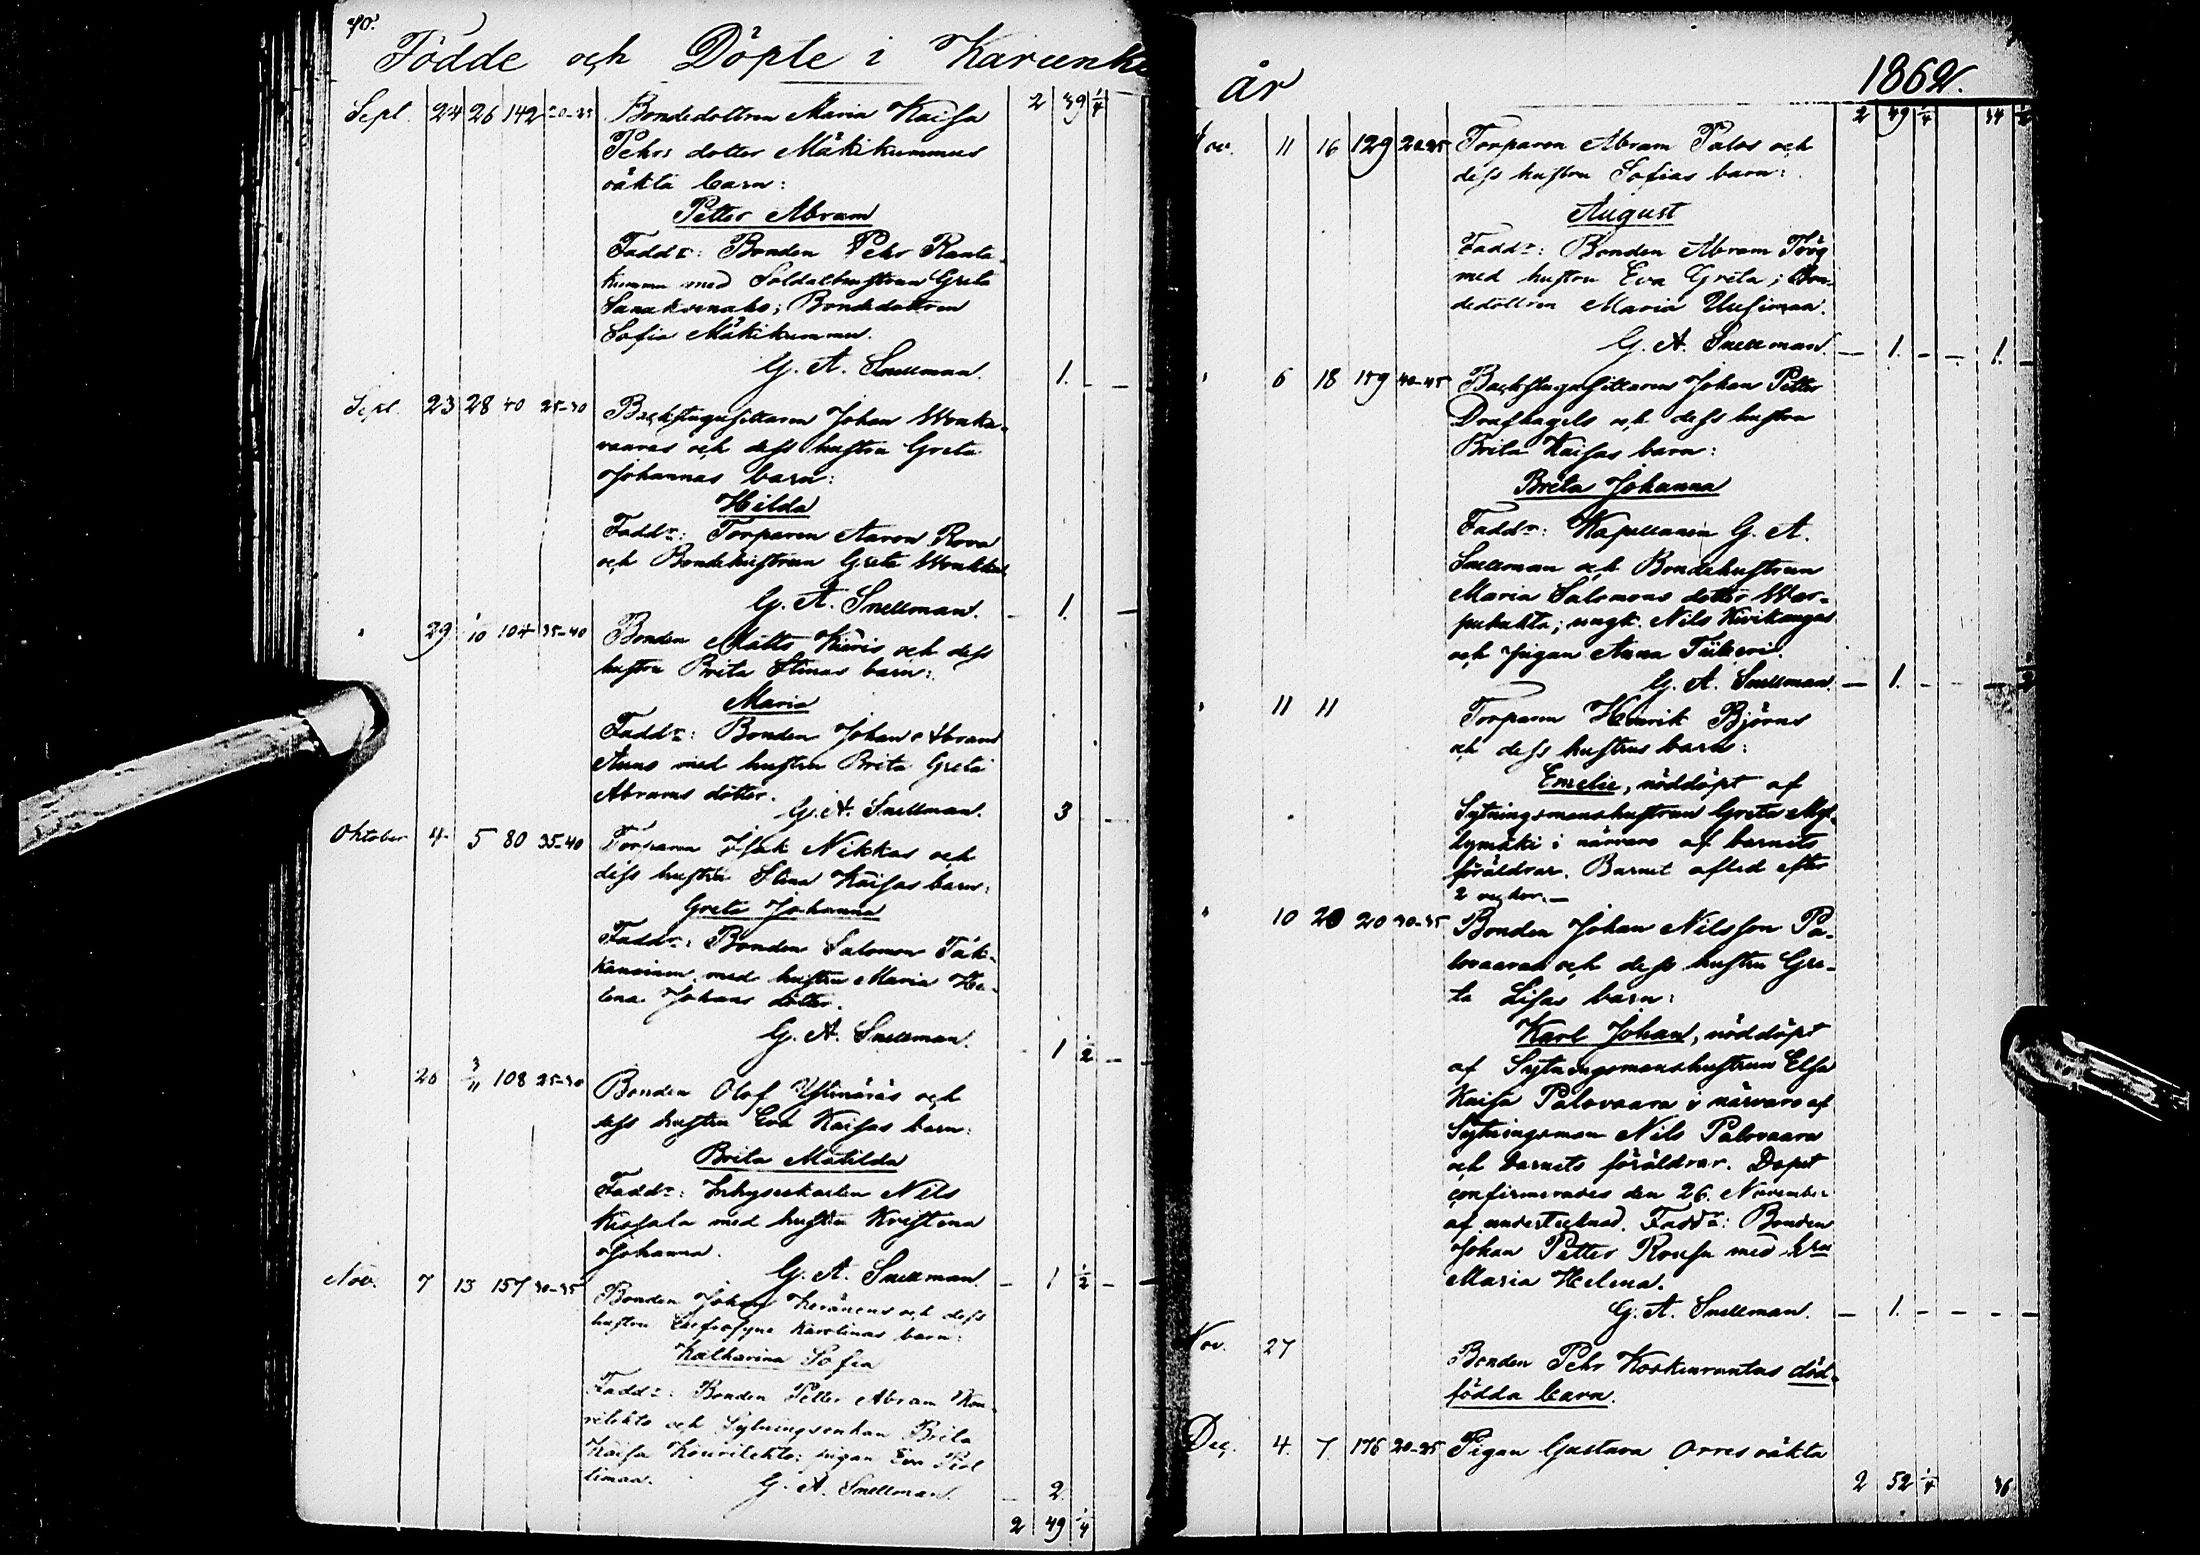 70.
Födde och Döpte i Karunki
2 39 1/4
Sept. 24 26 142 20-25 Bondedottren Maria Kaisa
Pehrs dotter Mäkikummus
oäkta barn:
Petter Abram
Faddr: Bonden Pehr Ranta-
kummu med Soldathustrun Greta
Bondedottren
Sofia Mäkikummu.
G. A. Snellman. 1. - -
Sept. 23 28 40 25-30 Backstugusittaren Johan Wonka-
vaaras och dess hustru Greta
Johannas barn:
Hilda
Faddr: Torparen Aaron Rova
och Bondehustrun Greta
G. A. Snellman. - 1. -
" 29 1/10 104 35-40 Bonden Matts Kieris och dess
hustru Brita Stinas barn:
Maria
Faddr: Bonden Johan Abram
Anno med hustru Brita Greta
Abrams dotter.
G. A. Snellman. 3 -
Oktober 4 5 80 35-40 Torparen Isak Nikkas och
dess hustru Stina Kaisas barn:
Greta Johanna
Faddr: Bonden Salomon
med hustru Maria He-
lena Johans dotter.
G. A. Snellman. - 1 1/2 -
" 26 3/11 108 25-30 Bonden Olof och
dess hustru Eva Kaisas barn:
Brita Matilda
Faddr: Inhyseskarlen Nils
med hustru Kristina
Johanna.
G. A. Snellman. - 1 1/2 - -
Nov. 7 13 157 30-35 Bonden Johan Keränens och dess
hustru Eufrosyne Karolinas barn:
Katharina Sofia
Faddr: Bonden Petter Abram Kou-
rilehto och Sytningsenkan Brita
Kaisa Kourilehto; pigan Eva
G. A. Snellman. - 2.
2 49 1/4
år 1862.
2 49 1/4 34
Nov. 11 16 129 20-25 Torparen Abram Palos och
dess hustru Sofias barn:
August
Faddr: Bonden Abram
med hustru Eva Greta; Bon-
dedottren Maria Uusimaa.
G. A. Snellman. - 1. - - 1. -
" 6 18 159 40-45 Backstugusittaren Johan Petter
och dess hustru
Brita Kaisas barn:
Breta Johanna
Faddr: Kapellanen G. A.
Snellman och Bondehustrun
Maria Salomons dotter
; ungk. Nils Kivikangas
och pigan Anna
G. A. Snellman. - 1. - -
" 11 11 Torparen Henrik Björns
och dess hustrus barn:
Emelie, nöddöpt af
Sytningsmanshustrun Greta Myl-
lymäki i närvaro af barnets
föräldrar. Barnet afled efter
2 veckor. —
" 10 20 20 30-35 Bonden Johan Nilsson Pa-
lovaaras och dess hustru Gre-
ta Lisas barn:
Karl Johan, nöddöpt
af Sytningsmanshustrun Elsa
Kaisa Palovaara i närvaro af
Sytningsman Nils Palovaara
och barnets föräldrar. Dopet
confirmerades den 26. November
af undertecknad. Faddr: Bonden
Johan Petter med hru
Maria Helena.
G. A. Snellman. - 1. - - - -
Nov. 27 Bonden Pehr Koskenrantas död-
födda barn.
Dec. 4. 7. 176 20-25 Pigan Gustava Orres oäkta
2 52 1/4 36